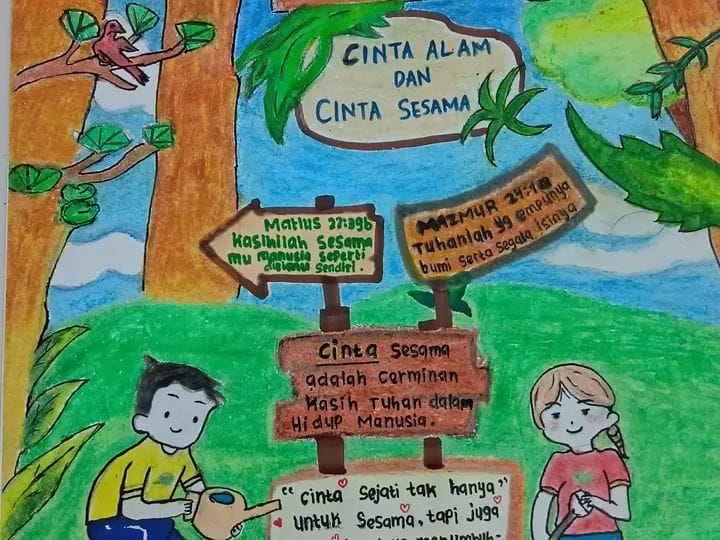 CINTA ALAM
DAN
CINTA SESAMA
Matius 22:39b
Kasihilah Sesama
mu manusia seperti
dirimu sendiri.
MAZMUR 24:1a
Tuhanlah yg empunya
bumi serta segala isinya
Cinta Sesama
adalah Cerminan
Kasih Tuhan dalam
Hidup Manusia.
"Cinta Sejati tak hanya"
untuk Sesama, tapi juga